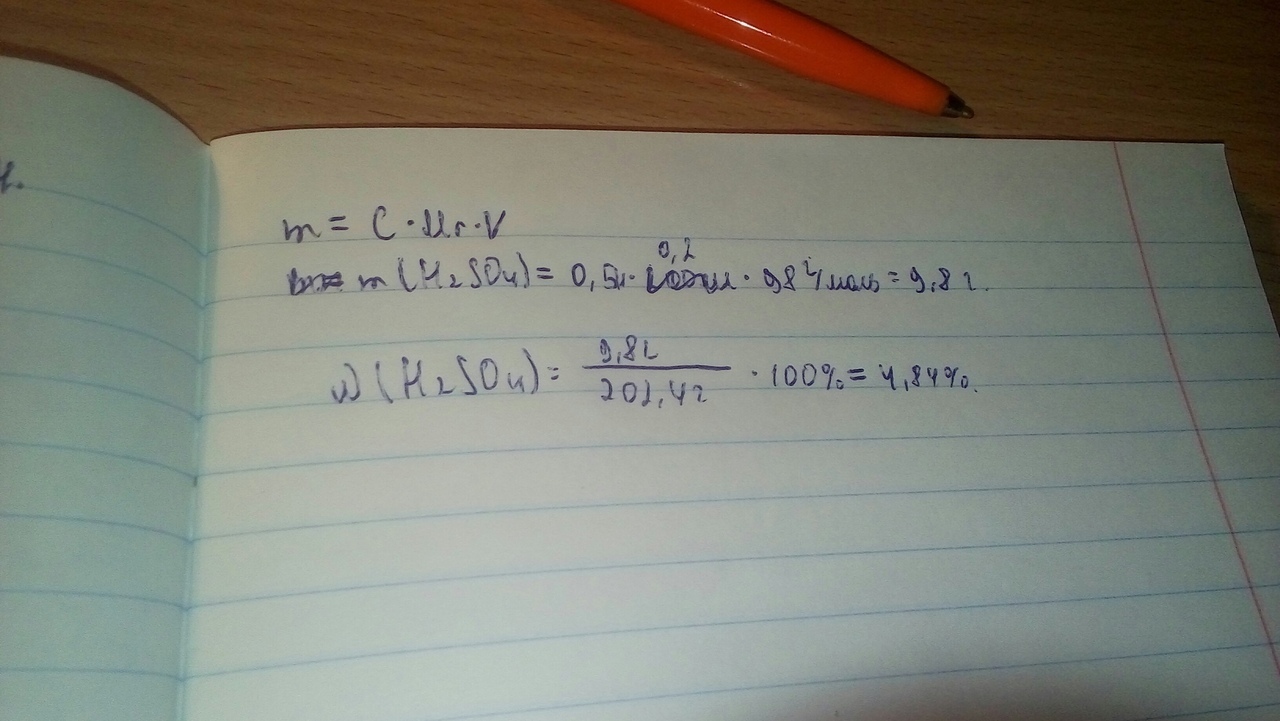 1.
m = C · Mr · V
m (H₂SO₄) = 0,5м · 0,2 · 98 г/моль = 9,8 г.
ω (H₂SO₄) = 9,8г / 202,4г · 100% = 4,84%.